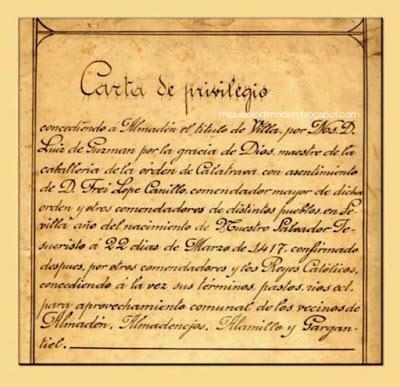 Carta de privilegio
mipuebloalmaden.blogspot.com
concediendo a Almadén el título de Villa, por Nos. D.
Luiz de Guzman por la gracia de Dios, maestre de la
caballeria de la orden de Calatrava con asentimiento
de D. Frei Lope Carrillo, comendador mayor de dicha
orden y otros comendadores de distintos pueblos, en Se-
villa año del nacimiento de Nuestro Salvador Je-
sucristo á 22 dias de Marzo de 1417. confirmado
despues, por otros comendadores y los Reyes Católicos,
concediendo á la vez sus términos pastos, rios ect.
para aprovechamiento comunal de los vecinos de
Almadén, Almadenejos, Alamillo y Gargan-
tiel.